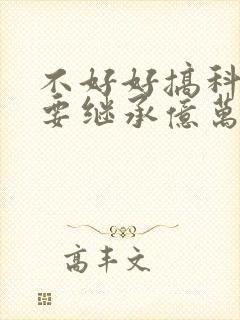 不好好搞科
要继承億萬
高丰文